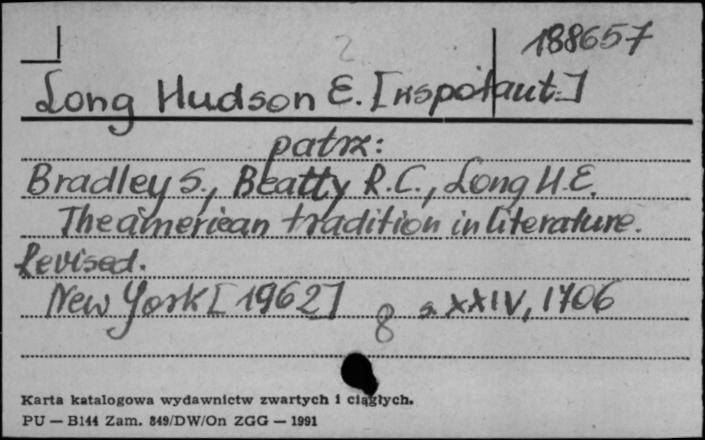 188657
2
Long Hudson E. [współaut.]
patrz:
Bradley S., Beatty R.C., Long H.E.
The american tradition in literature.
Revised.
New York [1962] 8 s. XXIV, 1706
Karta katalogowa wydawnictw zwartych i ciągłych.
PU — B144 Zam. 849/DW/On ZGG — 1991